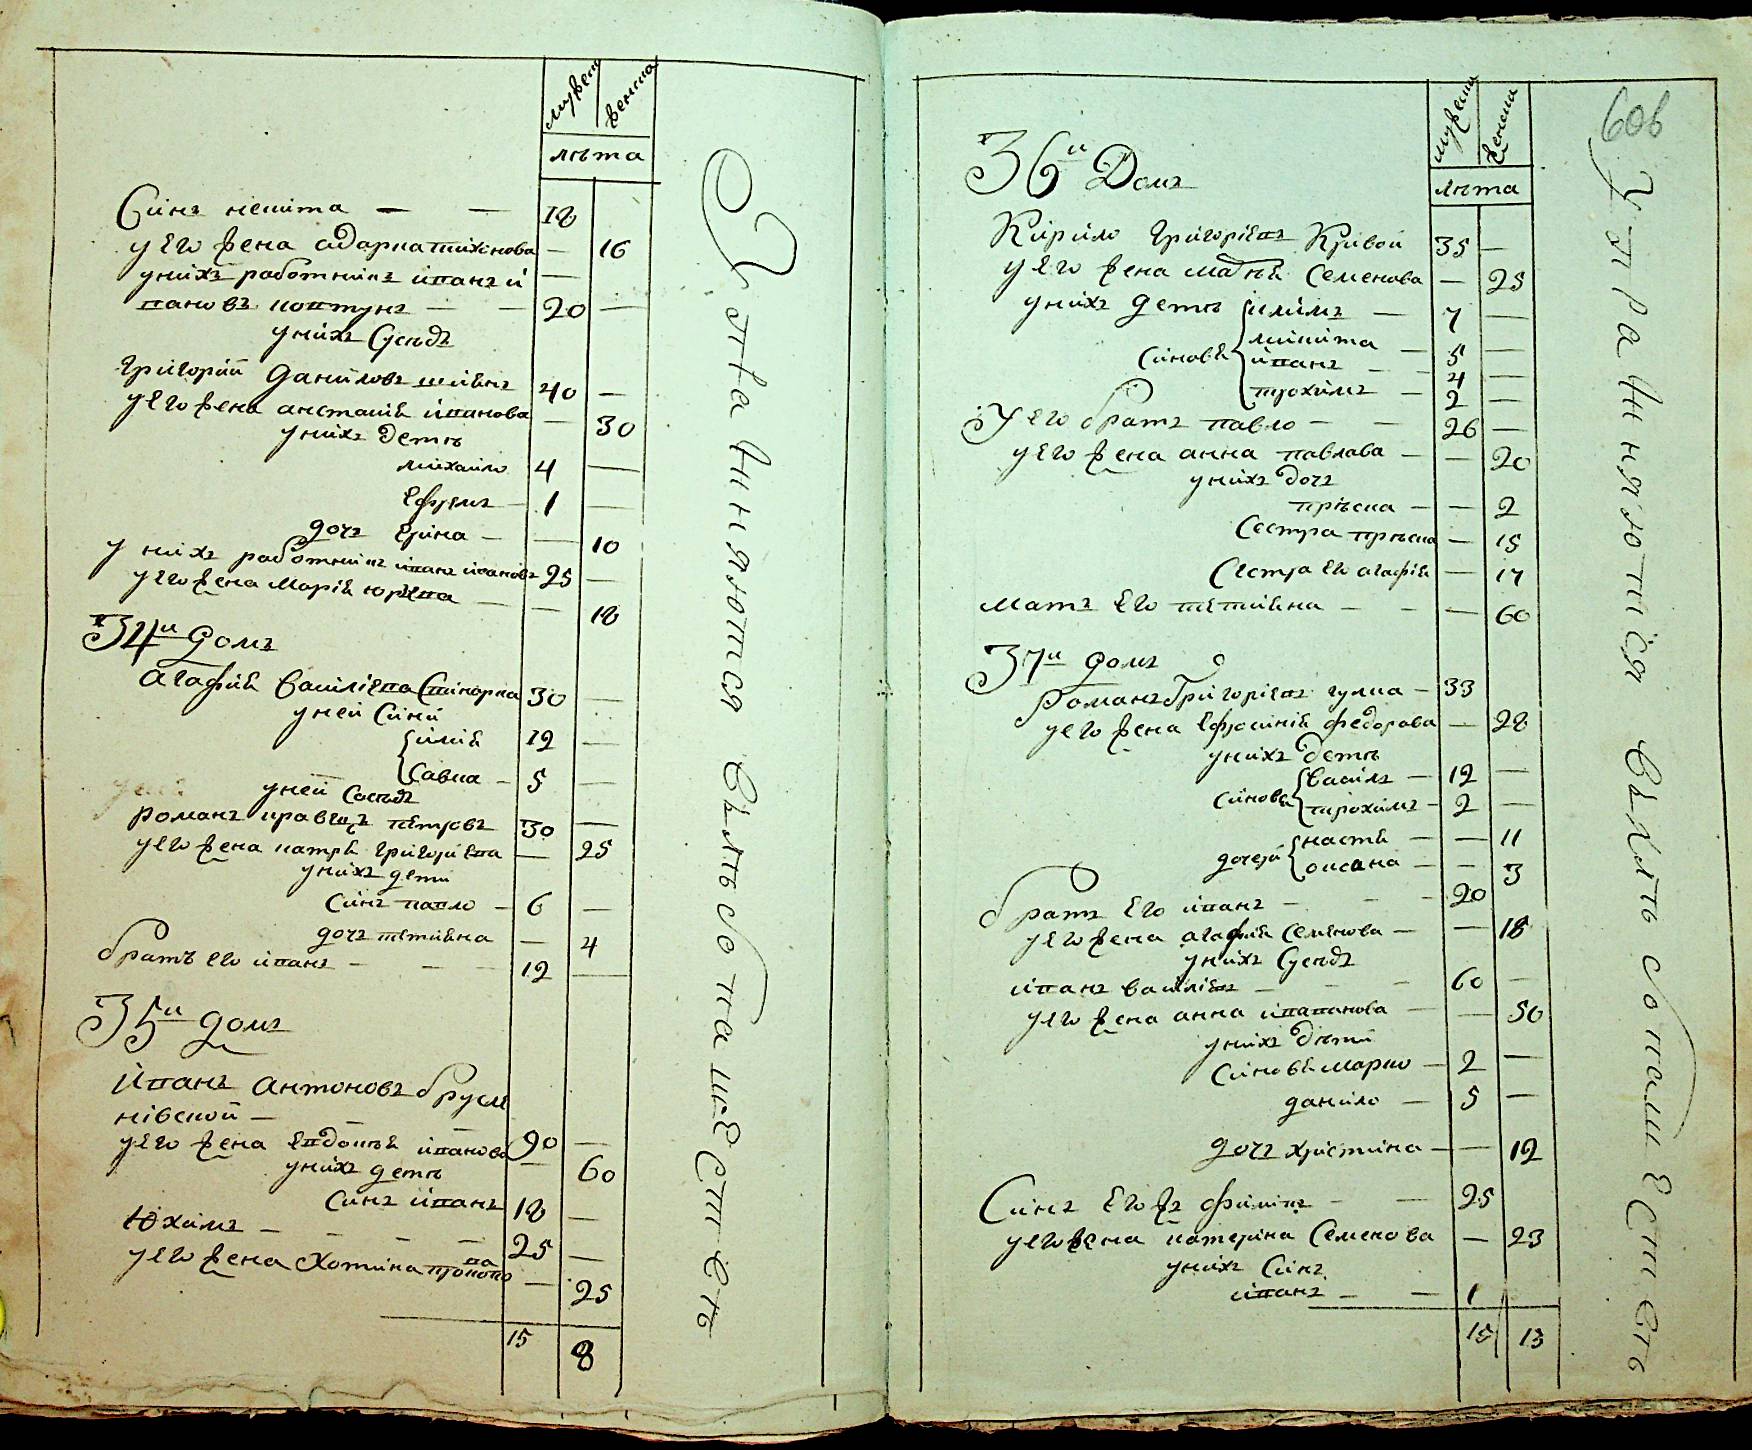 мужеска
женска
лѣта
Синъ никита — — 18
у его жена одарка тихонова — 16
унихъ работникъ иванъ и
вановъ ковтунъ — — 20 —
унихъ Суседъ
григорий даниловъ 40 —
у его жена анстасия иванова — 30
унихъ дети
михайло 4 —
Ефремъ — 1 —
дочь Ерина — — 10
у нихъ работникъ иванъ ивановъ 25 —
у его жена Мария юрева — — 18
34й домъ
Агафия василіева 30 —
уней Сини
илия 12 —
Савка — 5 —
уней Соседъ
роман кравецъ петровъ 30 —
у его жена григориева — 25
унихъ дети
Синъ павло — 6 —
дочь тетияна — 4
братъ его иванъ — — — 12 —
35й домъ
Иванъ Антоновъ брусил
нівской —
у его жена Евдокия иванова 90 — 60
унихъ дети
Синъ иванъ 18 —
Юхимъ — — — — 25 —
у его жена хотина прокопо
ва — 25
15 8
утра чиняются векѣ собвашие стъ
мужеска
женска
лѣта
60в
36й Домъ
Кирило григориевъ Кривой 35 —
у его жена Семенова — 25
унихъ дети
синовья
климъ — 7 —
микита — 5 —
иванъ — — 4 —
трохимъ — 2 —
У его братъ павло — — 26 —
у его жена анна павлова — — 20
унихъ дочь
приска — — 2
Сестра приска — 15
Сестра его агафия — 17
мать Его тетияна — — — 60
37й домъ
Романъ Григориевъ гулка — 33
у его жена Ефросиния федорова — 28
унихъ дети
синовья
василь — 12 —
трохимъ — 2 —
дочери
настя — — 11
оксана — — 3
братъ Его иванъ — — — 20
у его жена агафия Семенова — — 18
унихъ Суседъ
иванъ василіевъ — — — 60 —
у его жена анна иванова — — 50
унихъ дѣти
Синовя марко — 2 —
данило — 5 —
дочь христина — — 12
Синъ Его жъ филипъ — — 25
у его жена катерина Семенова — 23
унихъ Синъ
иванъ — — 1
15 13